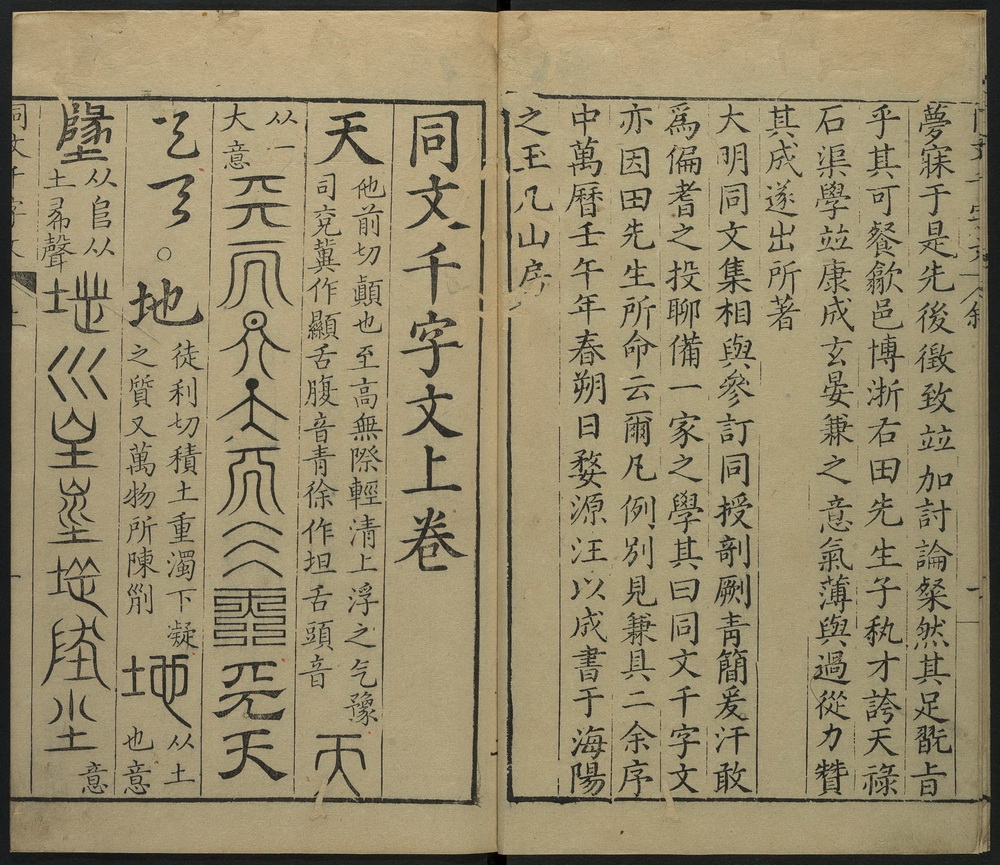 夢寐于是先後徵致竝加討論粲然其足翫㫖
乎其可餐歙邑博浙右田先生子秇才誇天祿
石渠學竝康成玄晏兼之意氣薄與過從力贊
其成遂出所著
大明同文集相與參訂同授剞劂青簡爰汗敢
爲偏耆之投聊備一家之學其曰同文千字文
亦因田先生所命云爾凡例別見兼具二余序
中萬曆壬午年春朔日婺源汪以成書于海陽
之玉几山房
同文千字文上卷
天
他前切顚也至高無際輕清上浮之气豫
司兖冀作顯舌腹音青徐作担舌頭音
从一
大意
天
地
徒利切積土重濁下凝
之質又萬物所陳𠛱
从土
也意
从𨸏从
土㣇聲
意
同文千字文